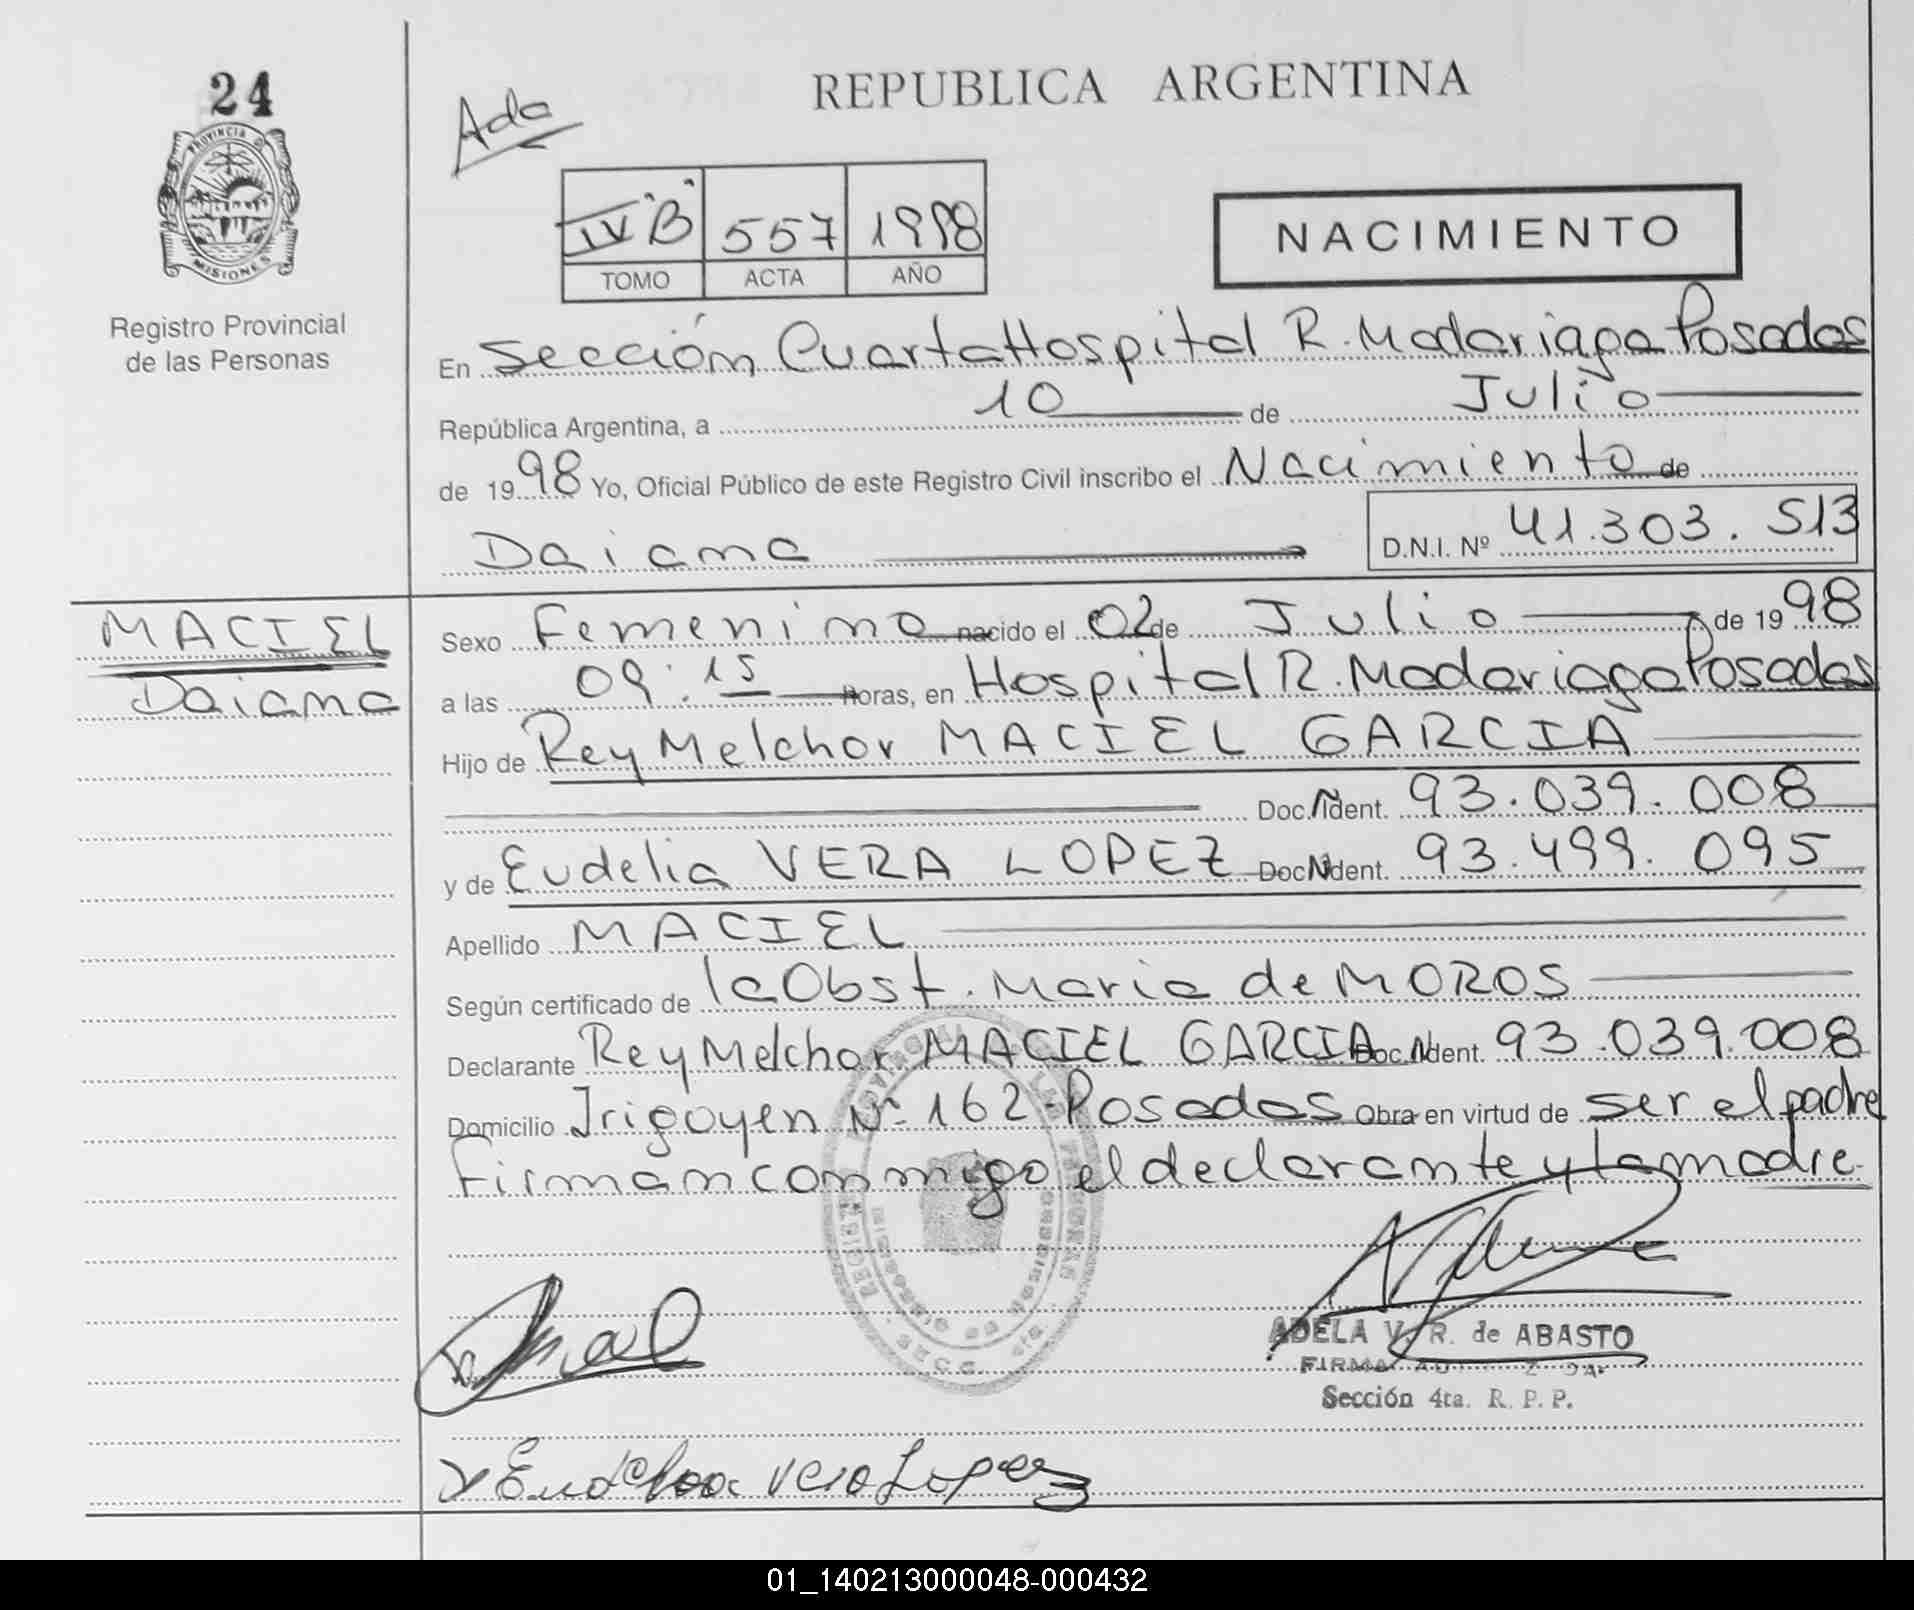 24
Ada
REPUBLICA ARGENTINA
PROVINCIA D
MISIONES
IV "B" 557 1998
TOMO ACTA AÑO
NACIMIENTO
Registro Provincial
de las Personas
En Sección Cuarta Hospital R. Madariaga Posadas
República Argentina, a 10 de Julio
de 1998 Yo, Oficial Público de este Registro Civil inscribo el Nacimiento de
Daiana D.N.I. Nº 41.303.513
MACIEL
Daiana
Sexo Femenino nacido el 02 de Julio de 1998
a las 09:15 horas, en Hospital R. Madariaga Posadas
Hijo de Rey Melchor MACIEL GARCIA
Doc. Ident. 93.039.008
y de Eudelia VERA LOPEZ Doc. Ident. 93.499.095
Apellido MACIEL
Según certificado de la Obst. Maria de MOROS
Declarante Rey Melchor MACIEL GARCIA Doc. Ident. 93.039.008
Domicilio Irigoyen Nº 162-Posadas Obra en virtud de ser el padre
Firman conmigo el declarante y la madre.
ADELA V. R. de ABASTO
FIRMA
Sección 4ta. R. P. P.
Vera Lopez
01_140213000048-000432